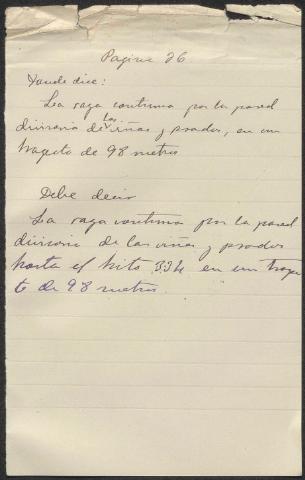 Pagina 26
Donde dice:
La raya continua por la pared
divisoria de las viñas y prados, en un
trayecto de 98 metros
Debe decir
La raya continua por la pared
divisoria de las viñas y prados
hasta el hito 334 en un trayec
to de 98 metros.